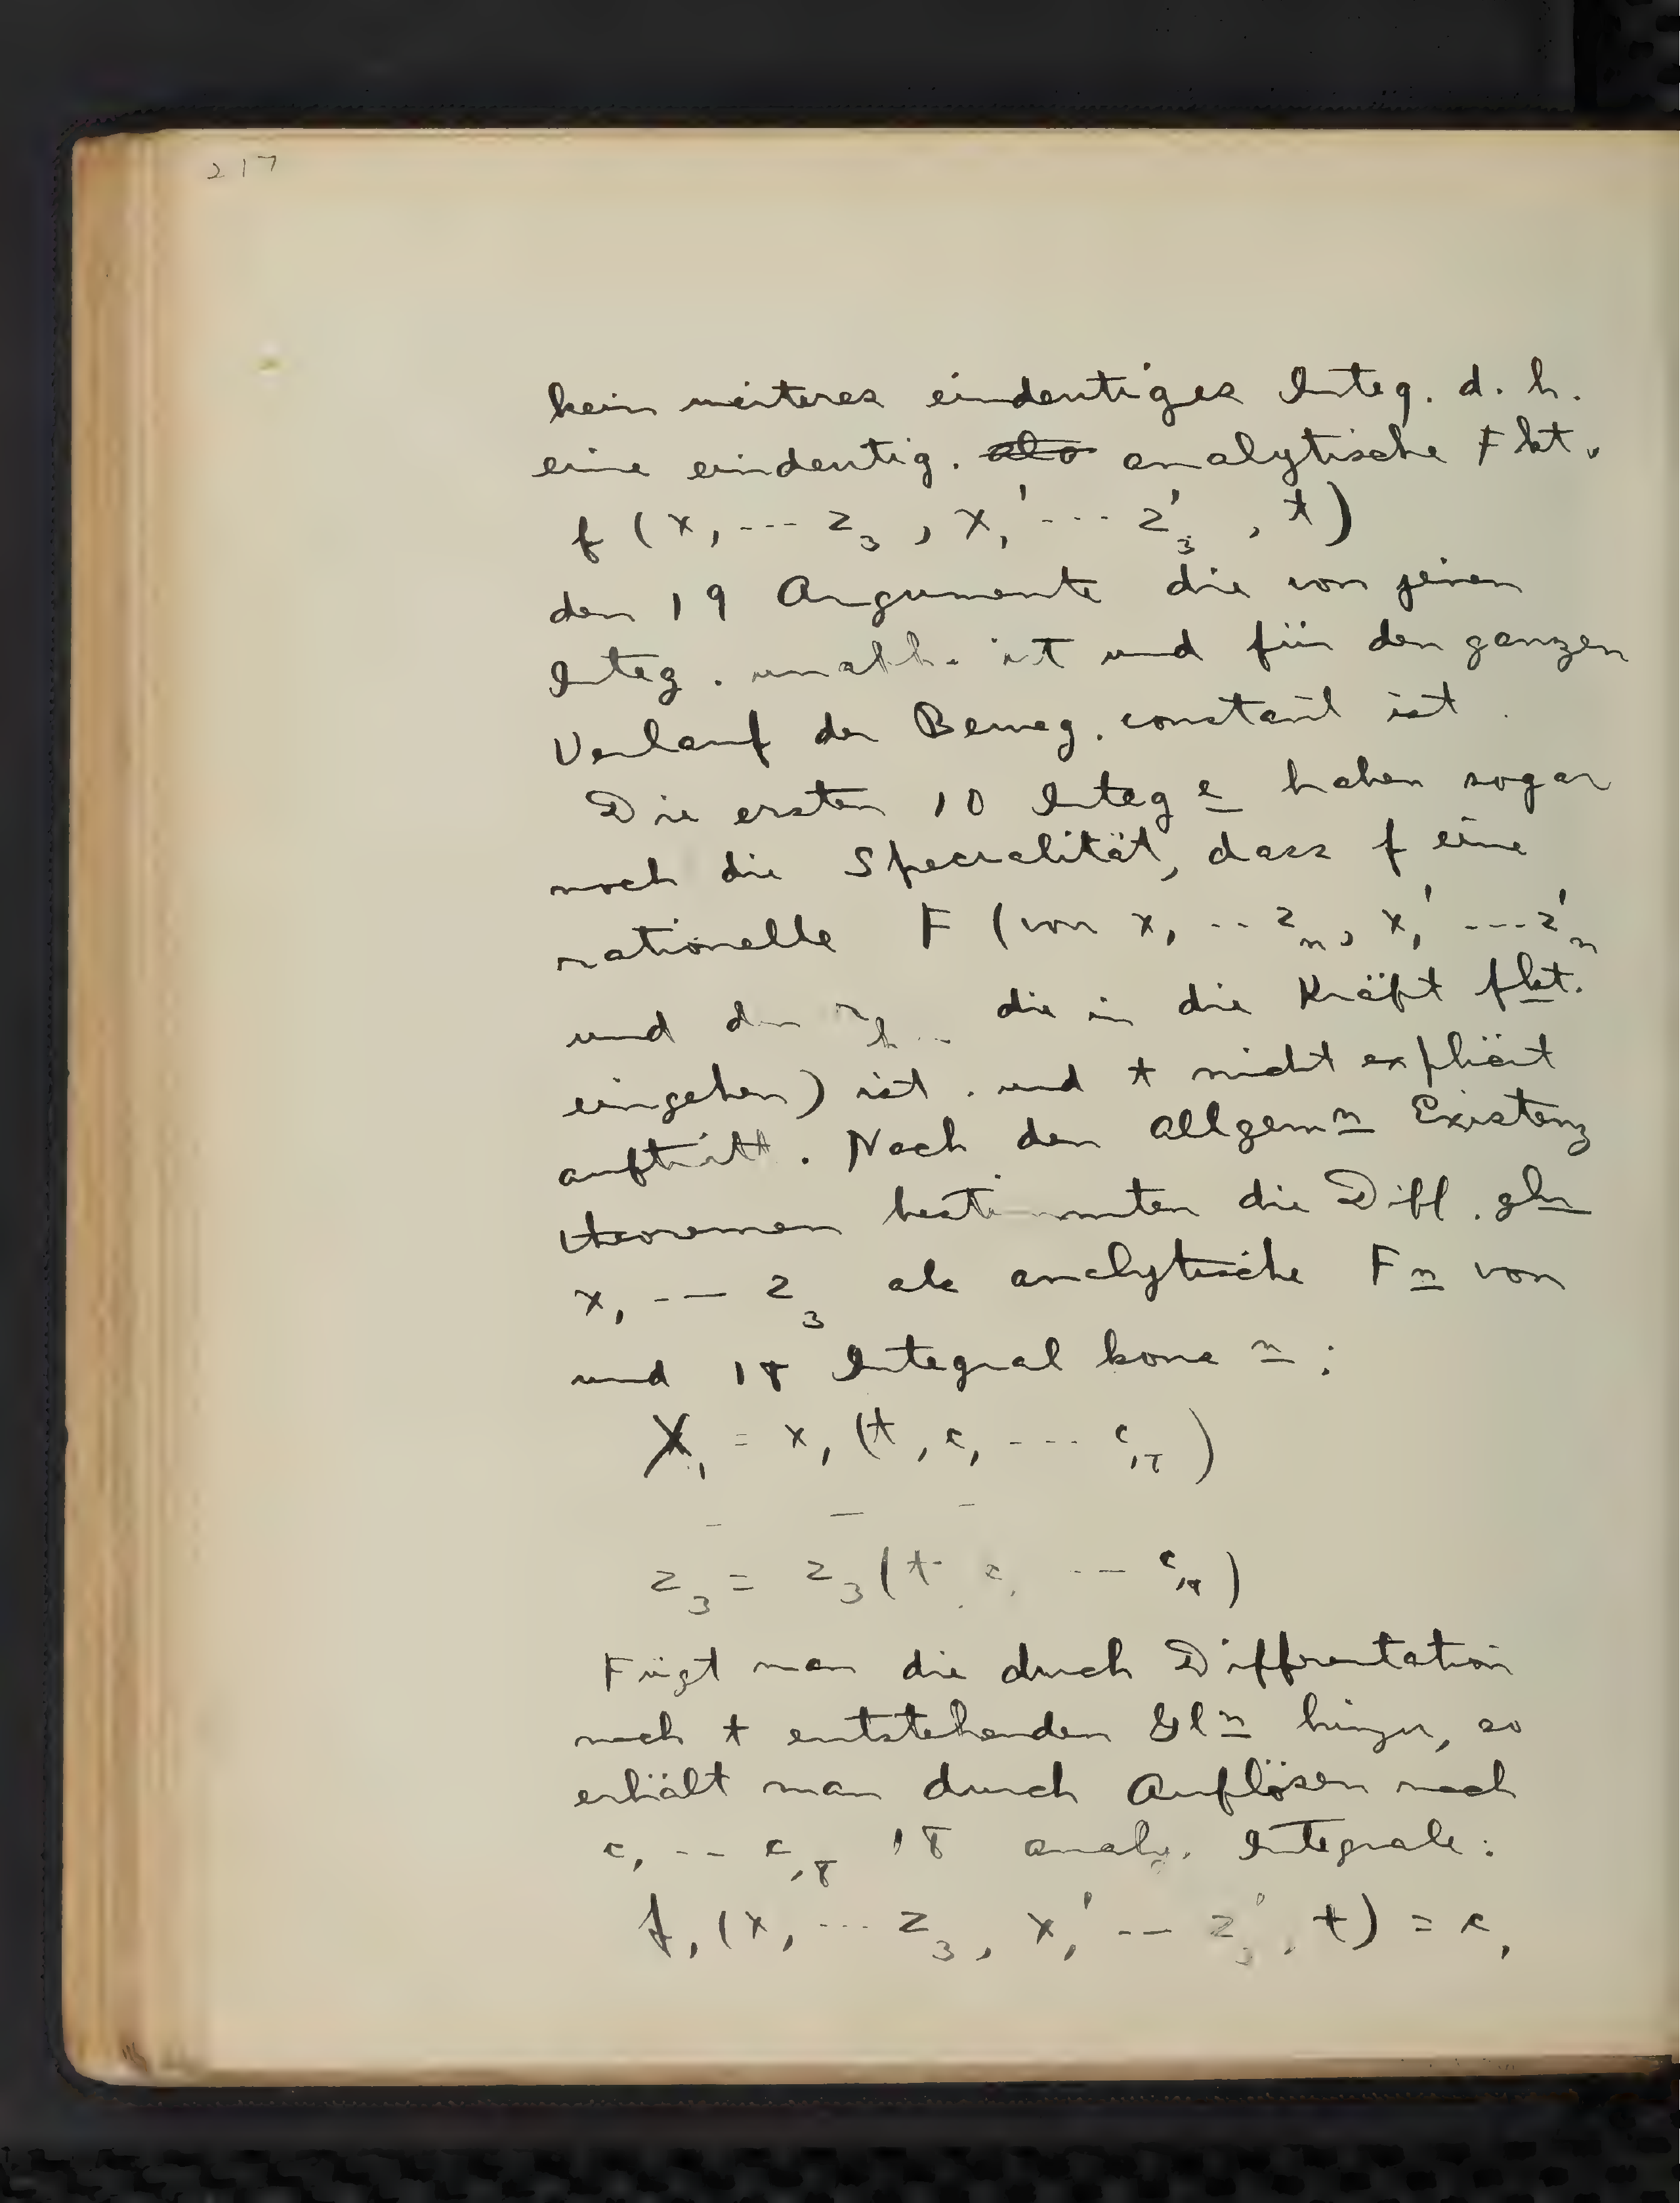 217
kein weiteres eindeutiges Integ. d. h.
eine eindeutig. also analytische Fkt.
f (x₁ --- z₃, x₁' --- z₃', t)
der 19 Argumente die von jenen
Integ. unabh. ist und für den ganzen
Verlauf der Beweg. constant ist.
Die ersten 10 Integ e haben sogar
noch die Specialität, dass f eine
rationelle F (von x₁ -- zₙ, x₁' --- zₙ'
und den die in die Kräft fkt.
eingehen) ist. und t nicht explicit
auftritt. Nach den allgem n Existenz
theoremen bestimmten die Diff. gln
x₁ --- z₃ als analytische F n von
und 18 Integral kons n :
X₁ = x₁ (t, c₁ --- c₁₈)
– – –
z₃ = z₃ (t c₁ --- c₁₈)
Fügt man die durch Diffrentation
nach t entstehenden Gl n hinzu, so
erhält man durch Auflösen nach
c₁ -- c₁₈ 18 analy. Integrale:
f₁ (x₁ --- z₃, x₁' -- z₃', t) = c₁